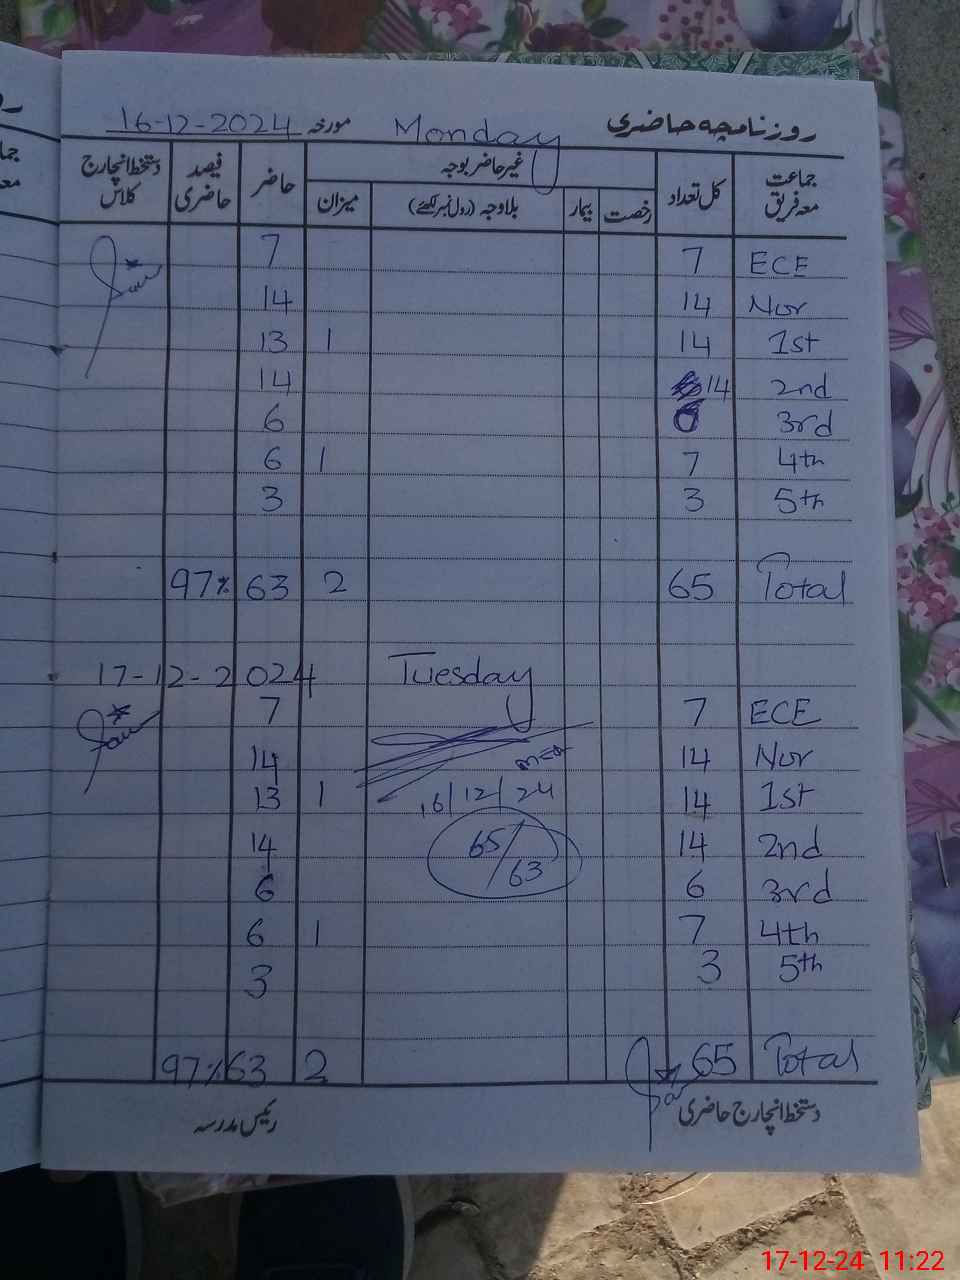 روزنامچہ حاضری Monday مورخہ 16-12-2024
جماعت معہ فریق کل تعداد غیر حاضر بوجہ حاضر فیصد حاضری دستخط انچارج کلاس
رخصت بیمار بلاوجہ (رول نمبر لکھیے) میزان
ECE 7 7
Nor 14 14
1st 14 1 13
2nd 14 14
3rd 6 6
4th 7 1 6
5th 3 3
Total 65 2 63 97%
17-12-2024 Tuesday
ECE 7 7
Nor 14 14
1st 14 1 13
16/12/24
2nd 14 14
65/63
3rd 6 6
4th 7 1 6
5th 3 3
Total 65 2 63 97%
دستخط انچارج حاضری رئیس مدرسہ
17-12-24 11:22